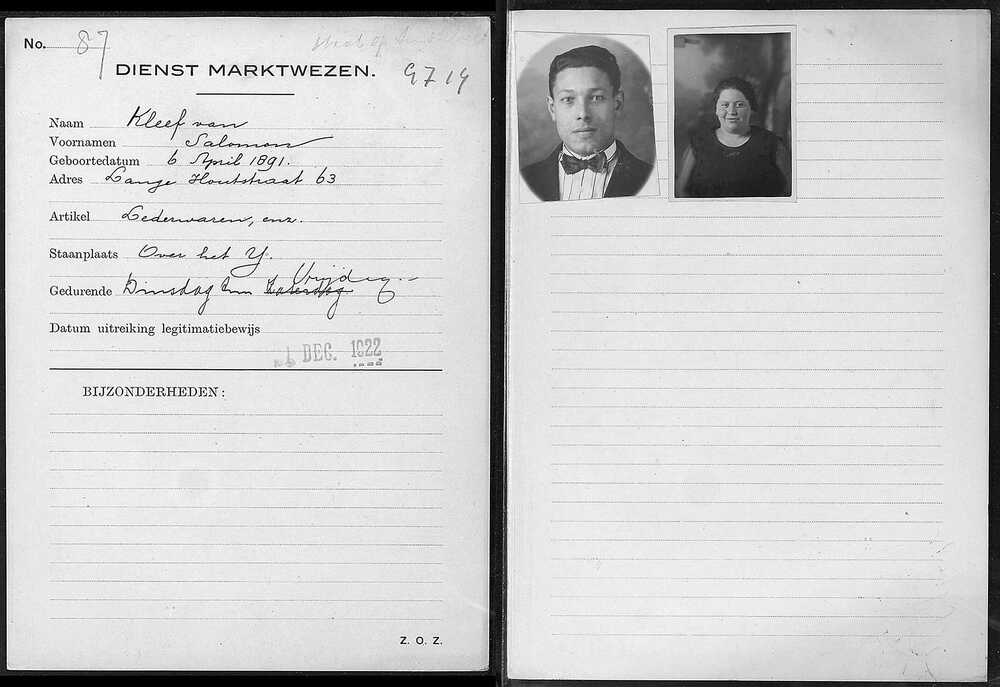 No. 87
9719
DIENST MARKTWEZEN.
Naam Kleef van
Voornamen Salomon
Geboortedatum 6 April 1891.
Adres Lange Houtstraat 63
Artikel Lederwaren, enz.
Staanplaats Over het Y.
Vrijdag
Gedurende Dinsdag t/m Zaterdag
Datum uitreiking legitimatiebewijs
DEC. 1922
BIJZONDERHEDEN:
Z. O. Z.